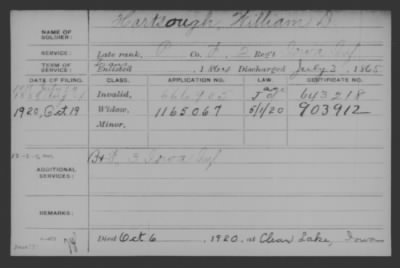 Hartsough, William D.
NAME OF SOLDIER:
SERVICE: Late rank, P Co. F, 2 Reg't Iowa Inf
TERM OF SERVICE: Enlisted , 1864 Discharged July 3, 1865
DATE OF FILING. CLASS. APPLICATION NO. LAW. CERTIFICATE NO.
Invalid, 643218
1920, Oct 19 Widow, 1165067 5/1/20 903912
Minor,
ADDITIONAL SERVICES: 3 Iowa Inf
REMARKS:
Died Oct 6, 1920, at Clear Lake, Iowa